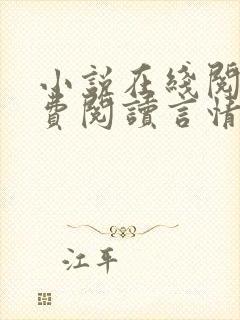 小説在綫閱
費閱讀言情
江平